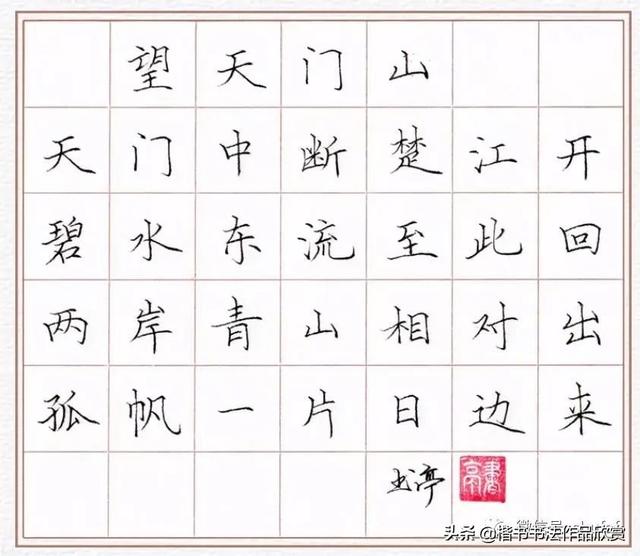 望天门山
天门中断楚江开
碧水东流至此回
两岸青山相对出
孤帆一片日边来
书亭
書亭
头条@楷书书法作品欣赏